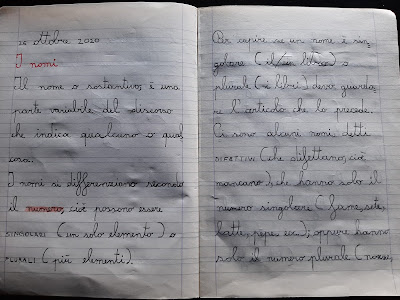 26 ottobre 2020
I nomi
Il nome o sostantivo, è una
parte variabile del discorso
che indica qualcuno o qual
cosa.
I nomi si differenziano secondo
il numero, cioè possono essere
SINGOLARI (un solo elemento) o
PLURALI (più elementi).
Per capire se un nome è sin-
golare (il/un libro) o
plurale (i libri) devo guarda
re l'articolo che lo precede.
Ci sono alcuni nomi detti
DIFETTIVI (che difettano, cioè
mancano), che hanno solo il
numero singolare (fame, sete,
latte, pepe ecc.); oppure hanno
solo il numero plurale (nozze,